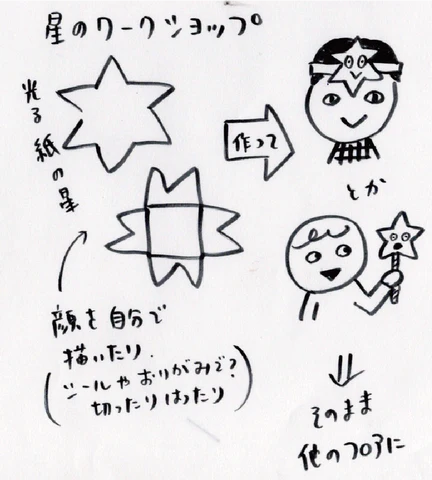 星のワークショップ
光る紙の星
作って
とか
顔を自分で
描いたり
(シールやおりがみで?
切ったりはったり)
そのまま
他のフロアに